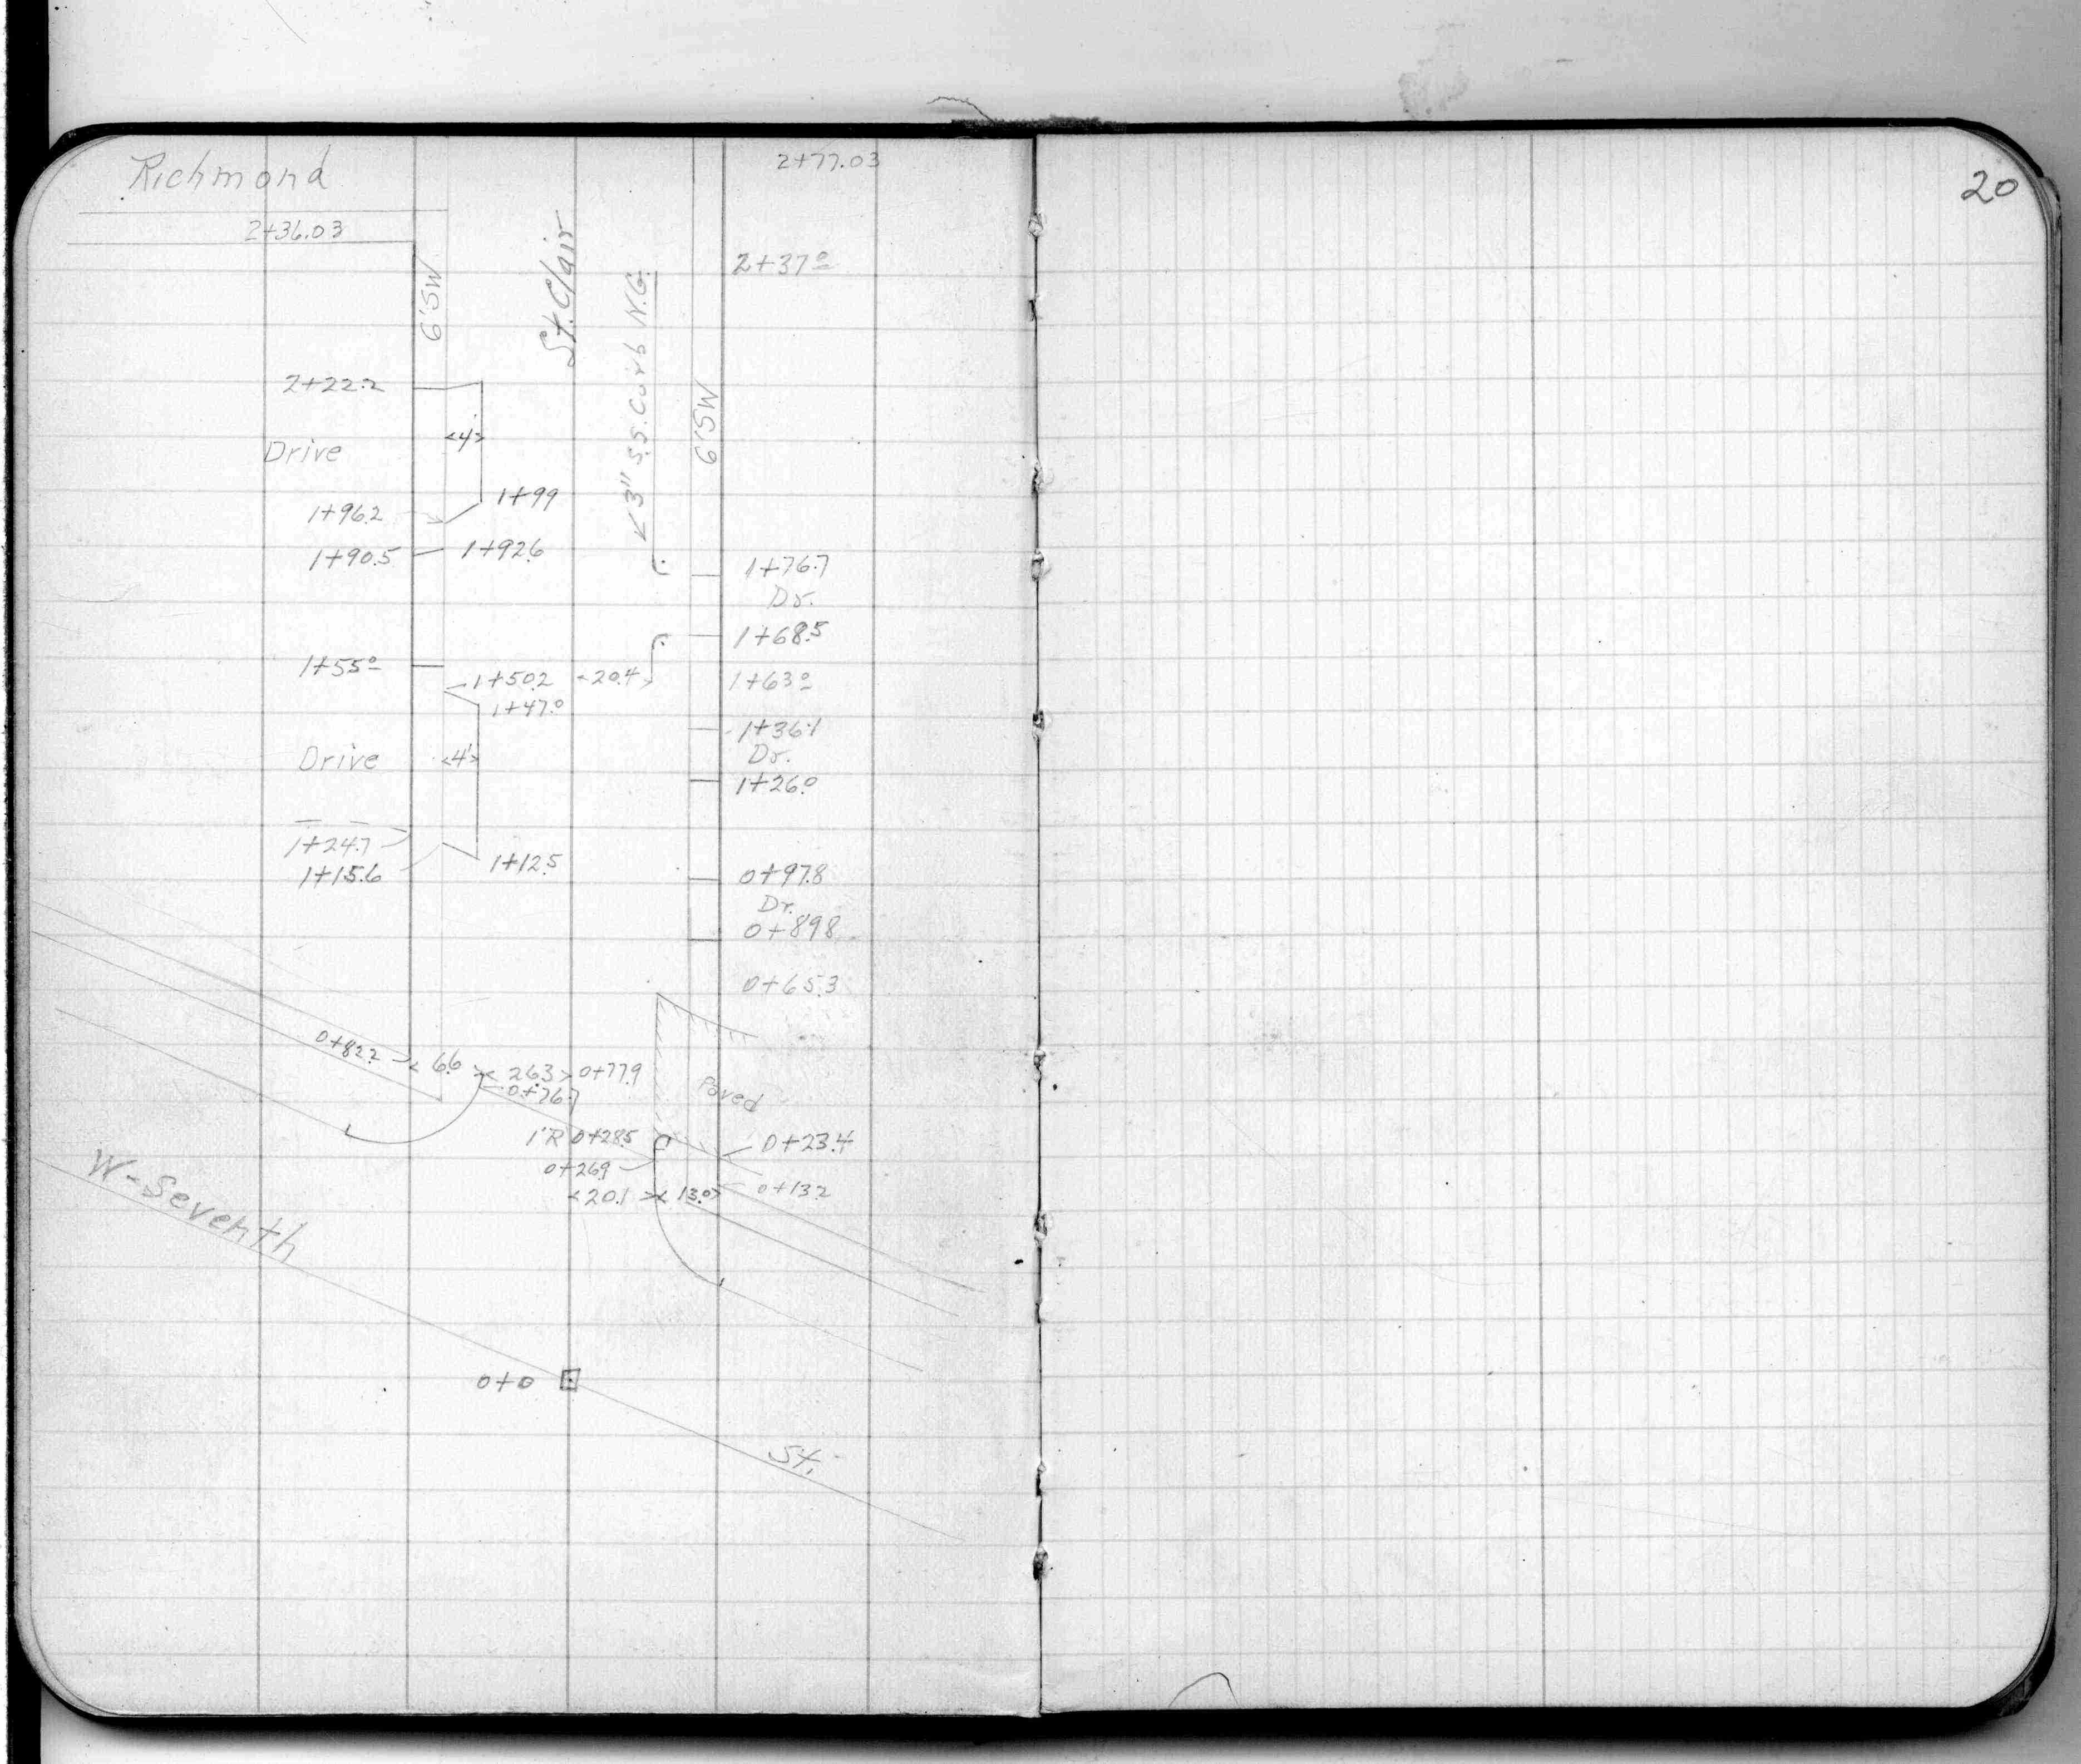 20
Richmond
2+77.03
2+36.03
St. Clair
2+37º
6'SW
3" S.S. Curb N.G.
6'SW
2+22.2
4'
Drive
1+99
1+96.2
1+90.5
1+92.6
1+76.7
Dr.
1+68.5
1+55º
1+50.2
20.4
1+63º
1+47.0
1+36.1
Drive
4'
Dr.
1+26.0
1+24.7
1+15.6
1+12.5
0+97.8
Dr.
0+89.8
0+65.3
0+82.2
6.6
26.3
0+77.9
0+76.7
Paved
1'R 0+28.5
0+23.4
0+26.9
20.1
13.0
0+13.2
W-Seventh
0+0
St.